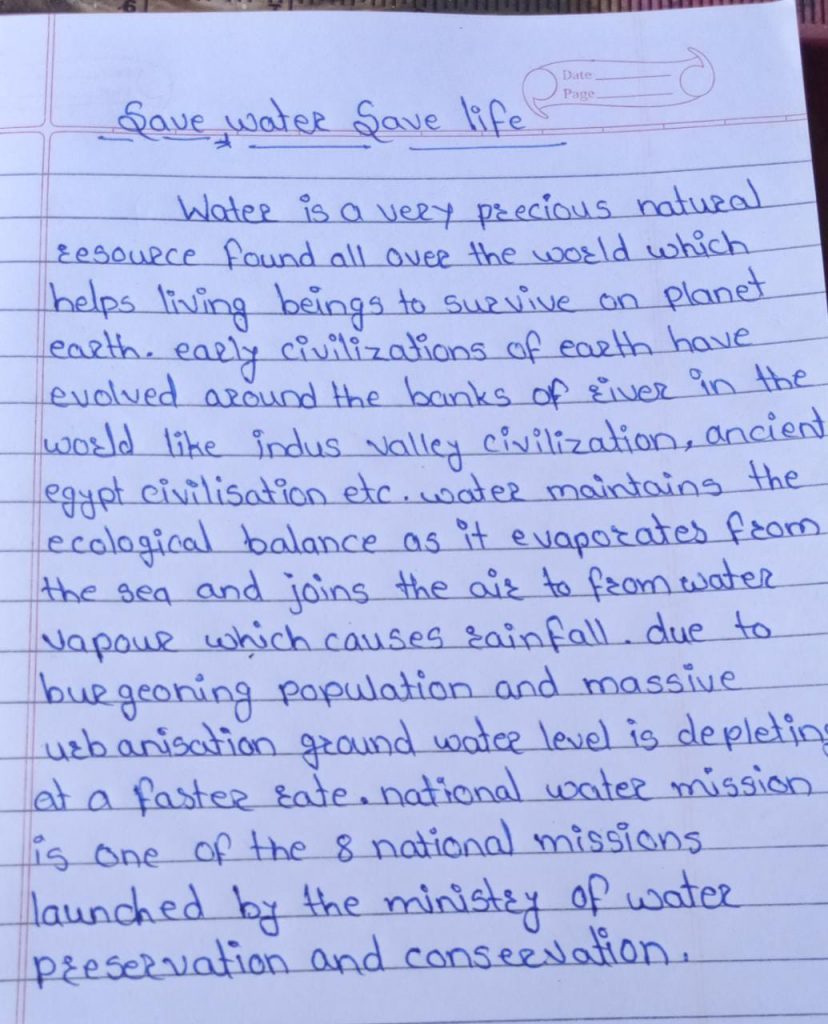 Date
Page
Save water Save life
Water is a very precious natural
resource found all over the world which
helps living beings to survive on planet
earth. early civilizations of earth have
evolved around the banks of river in the
world like indus valley civilization, ancient
egypt civilisation etc. water maintains the
ecological balance as it evaporates from
the sea and joins the air to from water
vapour which causes rainfall. due to
burgeoning population and massive
urbanisation ground water level is depleting
at a faster rate. national water mission
is one of the 8 national missions
launched by the ministry of water
preservation and conservation.